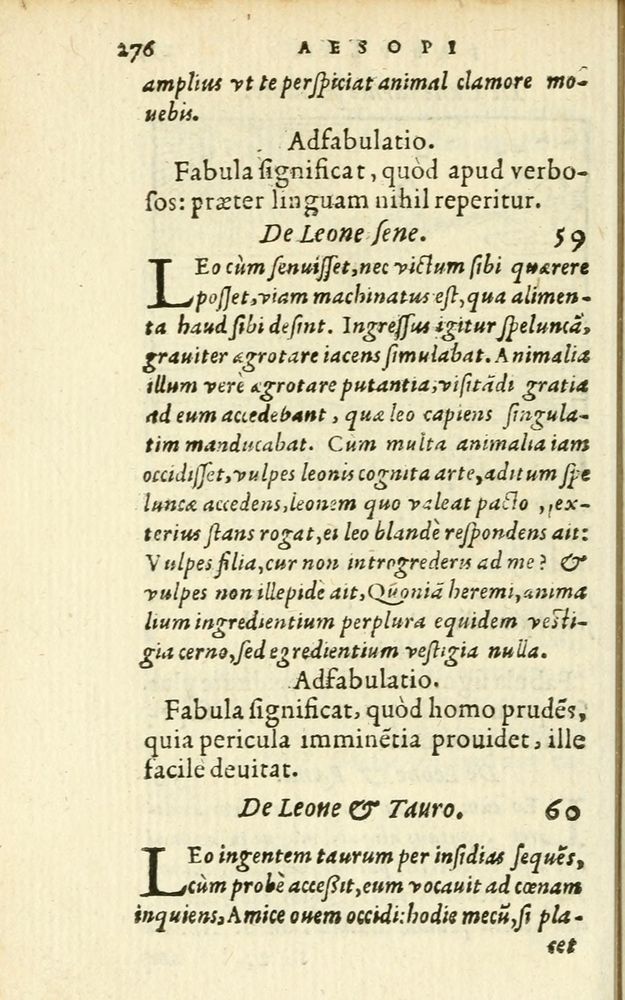 276 AESOPI
amplius vt te perſpiciat animal clamore mo-
uebis.
Adfabulatio.
Fabula ſignificat, quòd apud verbo-
ſos: præter linguam nihil reperitur.
De Leone ſene. 59
LEo cùm ſenuiſſet, nec victum ſibi quærere
poſſet, viam machinatus eſt, qua alimen-
ta haud ſibi deſint. Ingreſſus igitur ſpeluncã,
grauiter ægrotare iacens ſimulabat. Animalia
illum verè ægrotare putantia, viſitãdi gratia
ad eum accedebant, quæ leo capiens ſingula-
tim manducabat. Cùm multa animalia iam
occidiſſet, vulpes leonis cognita arte, aditum ſpe
luncæ accedens, leonem quo valeat pacto, ex-
terius ſtans rogat, ei leo blandè reſpondens ait:
Vulpes filia, cur non introgrederis ad me? &
vulpes non illepidè ait, Quoniã heremi, anima
lium ingredientium perplura equidem veſti-
gia cerno, ſed egredientium veſtigia nulla.
Adfabulatio.
Fabula ſignificat, quòd homo prudẽs,
quia pericula imminẽtia prouidet, ille
facilè deuitat.
De Leone & Tauro. 60
LEo ingentem taurum per inſidias ſequẽs,
cùm probè acceßit, eum vocauit ad cœnam
inquiens, Amice ouem occidi: hodie mecũ, ſi pla-
cet